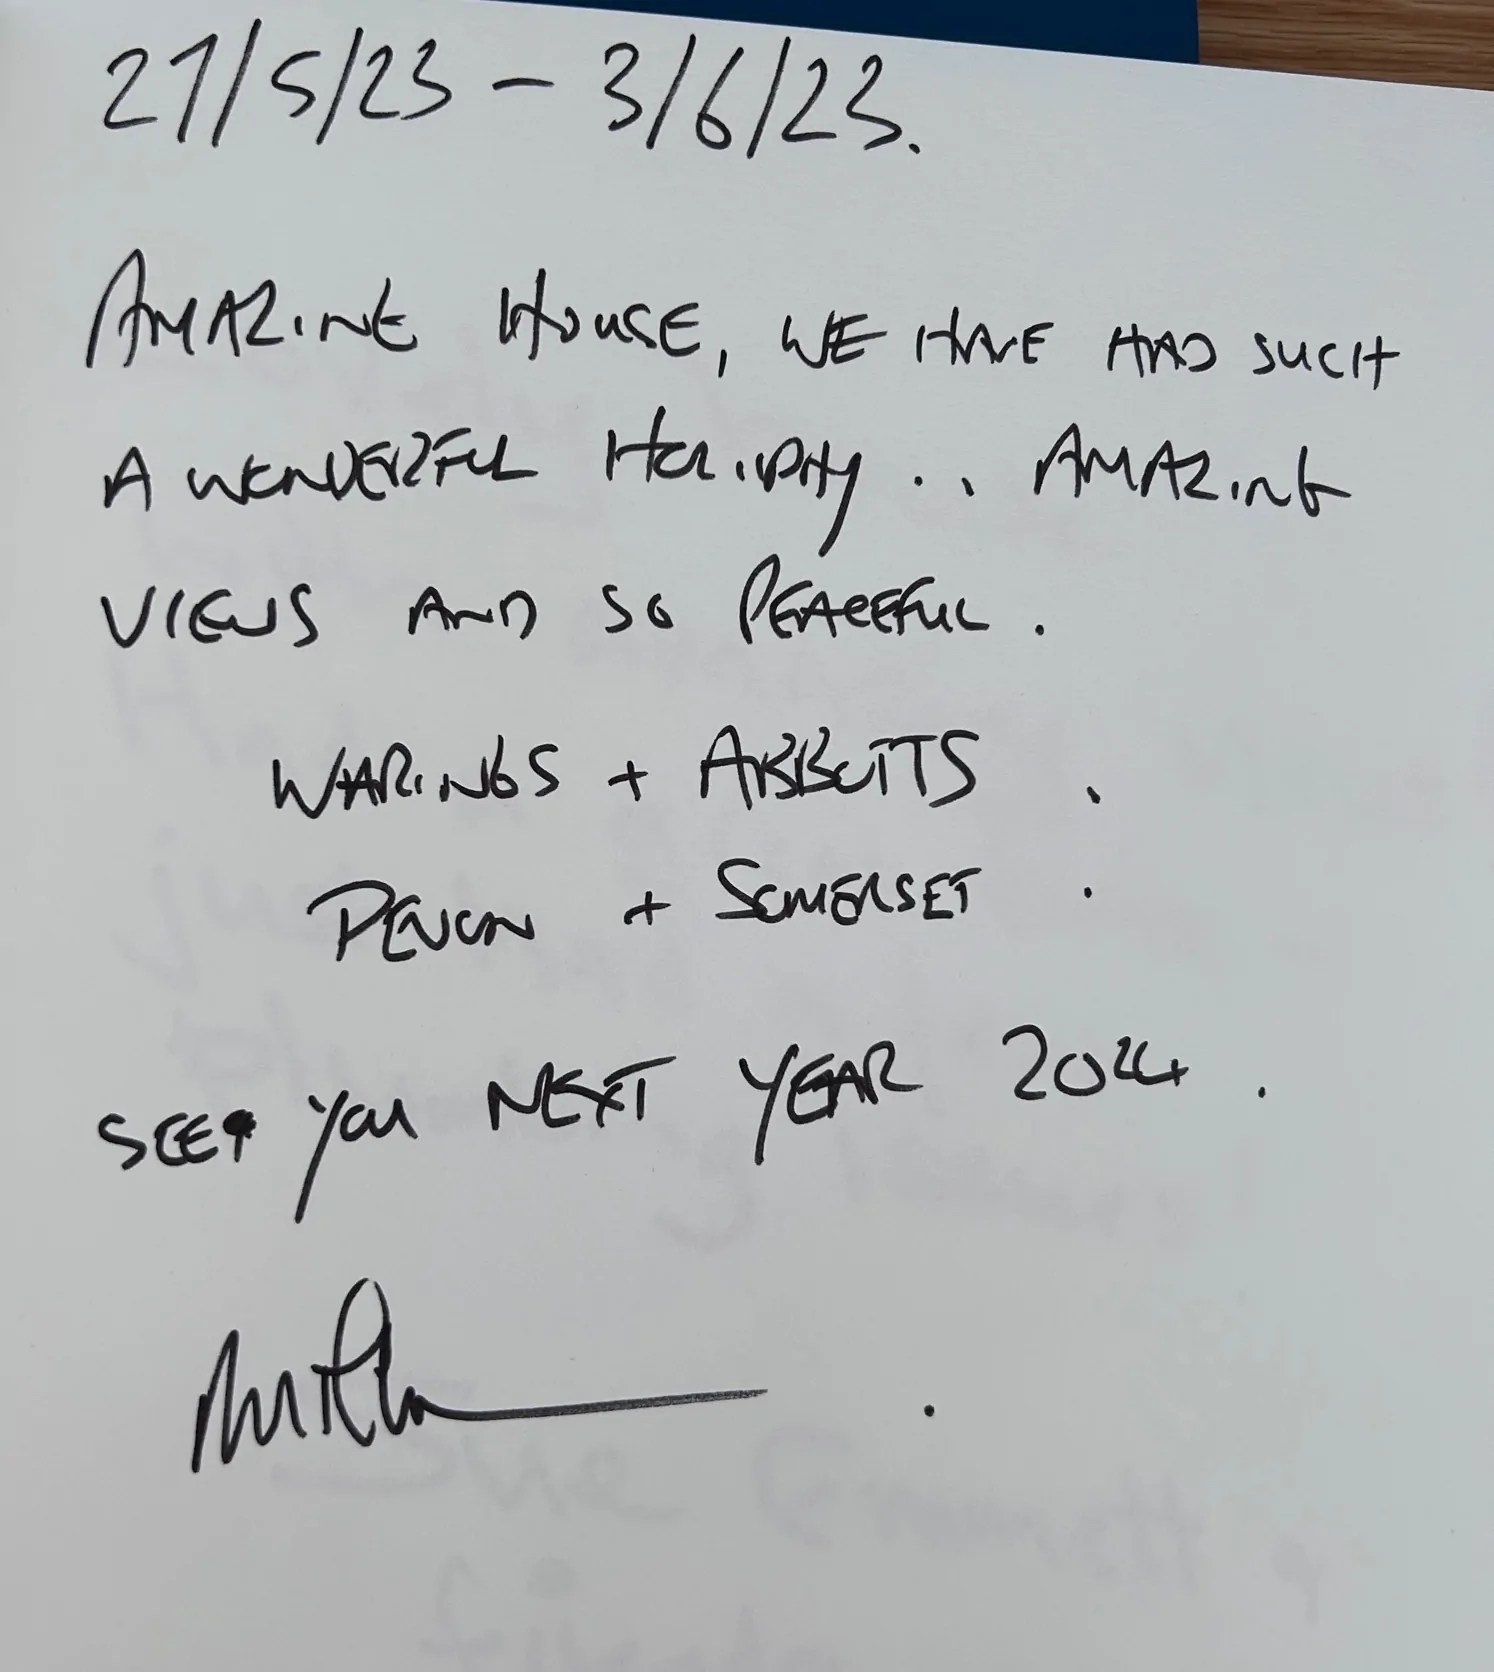 27/5/23 - 3/6/23.
AMAZING HOUSE, WE HAVE HAD SUCH
A WONDERFUL HOLIDAY... AMAZING
VIEWS AND SO PEACEFUL.
WARINGS + ABBOTTS.
DEVON + SOMERSET.
SEE YOU NEXT YEAR 2024.